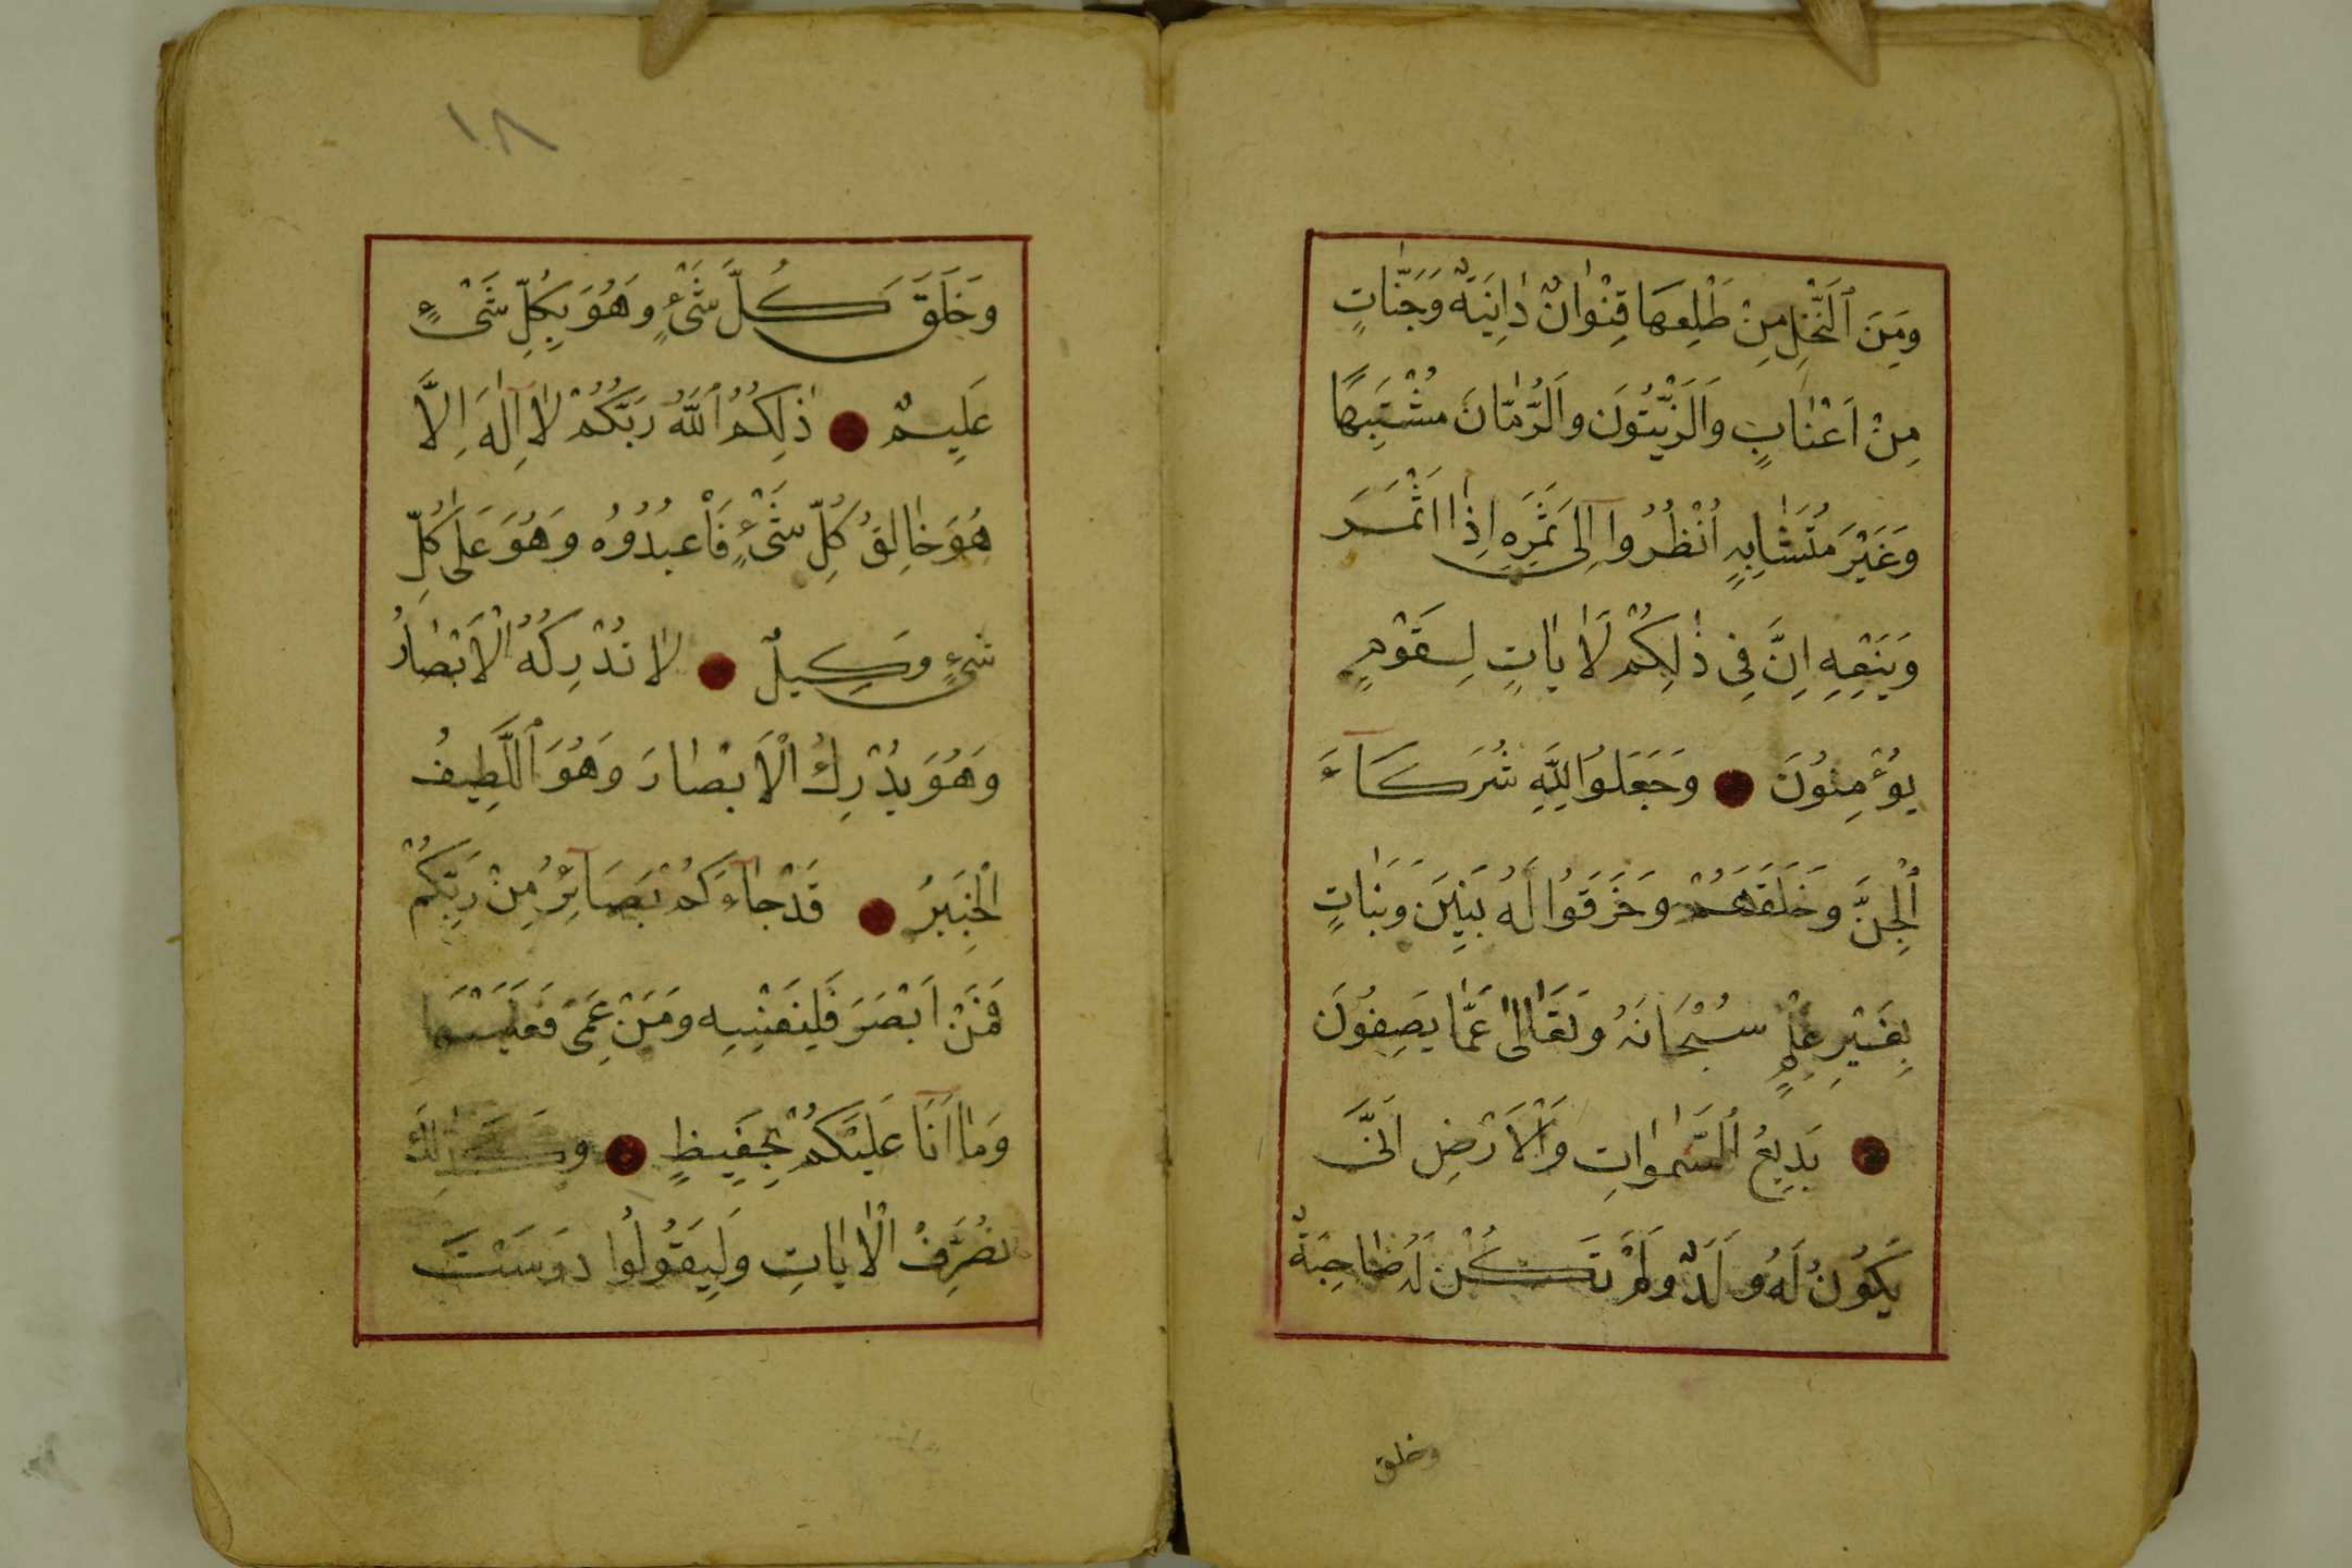 وَمِنَ ٱلنَّخْلِ مِنْ طَلْعِهَا قِنْوَانٌ دَانِيَةٌ وَجَنَّاتٍ
مِنْ اَعْنَابٍ وَالزَّيْتُونَ وَالرُّمَّانَ مُشْتَبِهًا
وَغَيْرَ مُتَشَابِهٍ اُنْظُرُوا اِلَى ثَمَرِهِ اِذَا اَثْمَرَ
وَيَنْعِهِ اِنَّ فِى ذٰلِكُمْ لَاٰيَاتٍ لِقَوْمٍ
يُؤْمِنُونَ ● وَجَعَلُوا لِلّٰهِ شُرَكَآءَ
ٱلْجِنَّ وَخَلَقَهُمْ وَخَرَقُوا لَهُ بَنِينَ وَبَنَاتٍ
بِغَيْرِ عِلْمٍ سُبْحَانَهُ وَتَعَالٰى عَمَّا يَصِفُونَ
● بَدِيعُ ٱلسَّمٰوَاتِ وَالْاَرْضِ اَنَّى
يَكُونُ لَهُ وَلَدٌ وَلَمْ تَكُنْ لَهُ صَاحِبَةٌ
وخلق
١٠٨
وَخَلَقَ كُلَّ شَىْءٍ وَهُوَ بِكُلِّ شَىْءٍ
عَلِيمٌ ● ذٰلِكُمُ ٱللّٰهُ رَبُّكُمْ لَا اِلٰهَ اِلَّا
هُوَ خَالِقُ كُلِّ شَىْءٍ فَاعْبُدُوهُ وَهُوَ عَلٰى كُلِّ
شَىْءٍ وَكِيلٌ ● لَا تُدْرِكُهُ الْاَبْصَارُ
وَهُوَ يُدْرِكُ الْاَبْصَارَ وَهُوَ ٱللَّطِيفُ
الْخَبِيرُ ● قَدْ جَآءَكُمْ بَصَآئِرُ مِنْ رَبِّكُمْ
فَمَنْ اَبْصَرَ فَلِنَفْسِهِ وَمَنْ عَمِىَ فَعَلَيْهَا
وَمَا اَنَا عَلَيْكُمْ بِحَفِيظٍ ● وَكَذٰلِكَ
نُصَرِّفُ الْاٰيَاتِ وَلِيَقُولُوا دَرَسْتَ